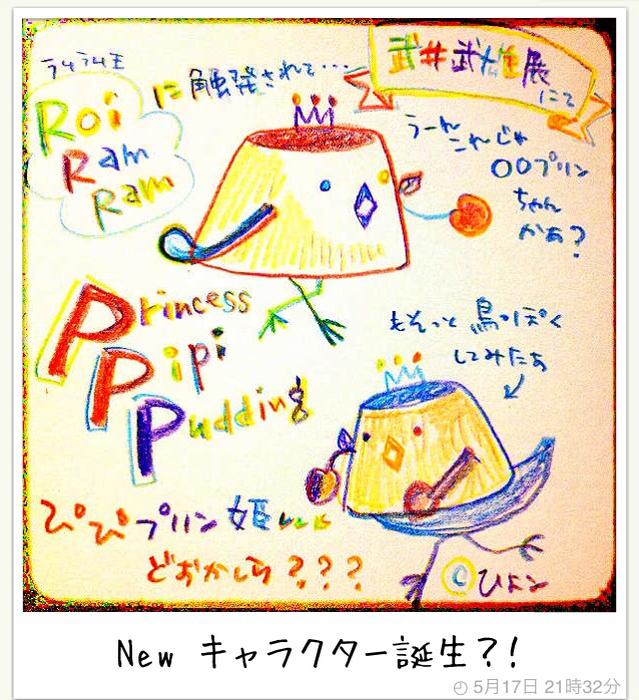 ラムラム王
Roi
Ram
Ram
に触発されて…
武井武雄展
にて
うーん
これじゃ
〇〇プリン
ちゃん
かぁ?
Princess
Pipi
Pudding
もそっと鳥っぽく
してみたぁ
ぴぴプリン姫
どおかしら???
©ひよン
New キャラクター誕生?!
5月17日 21時32分